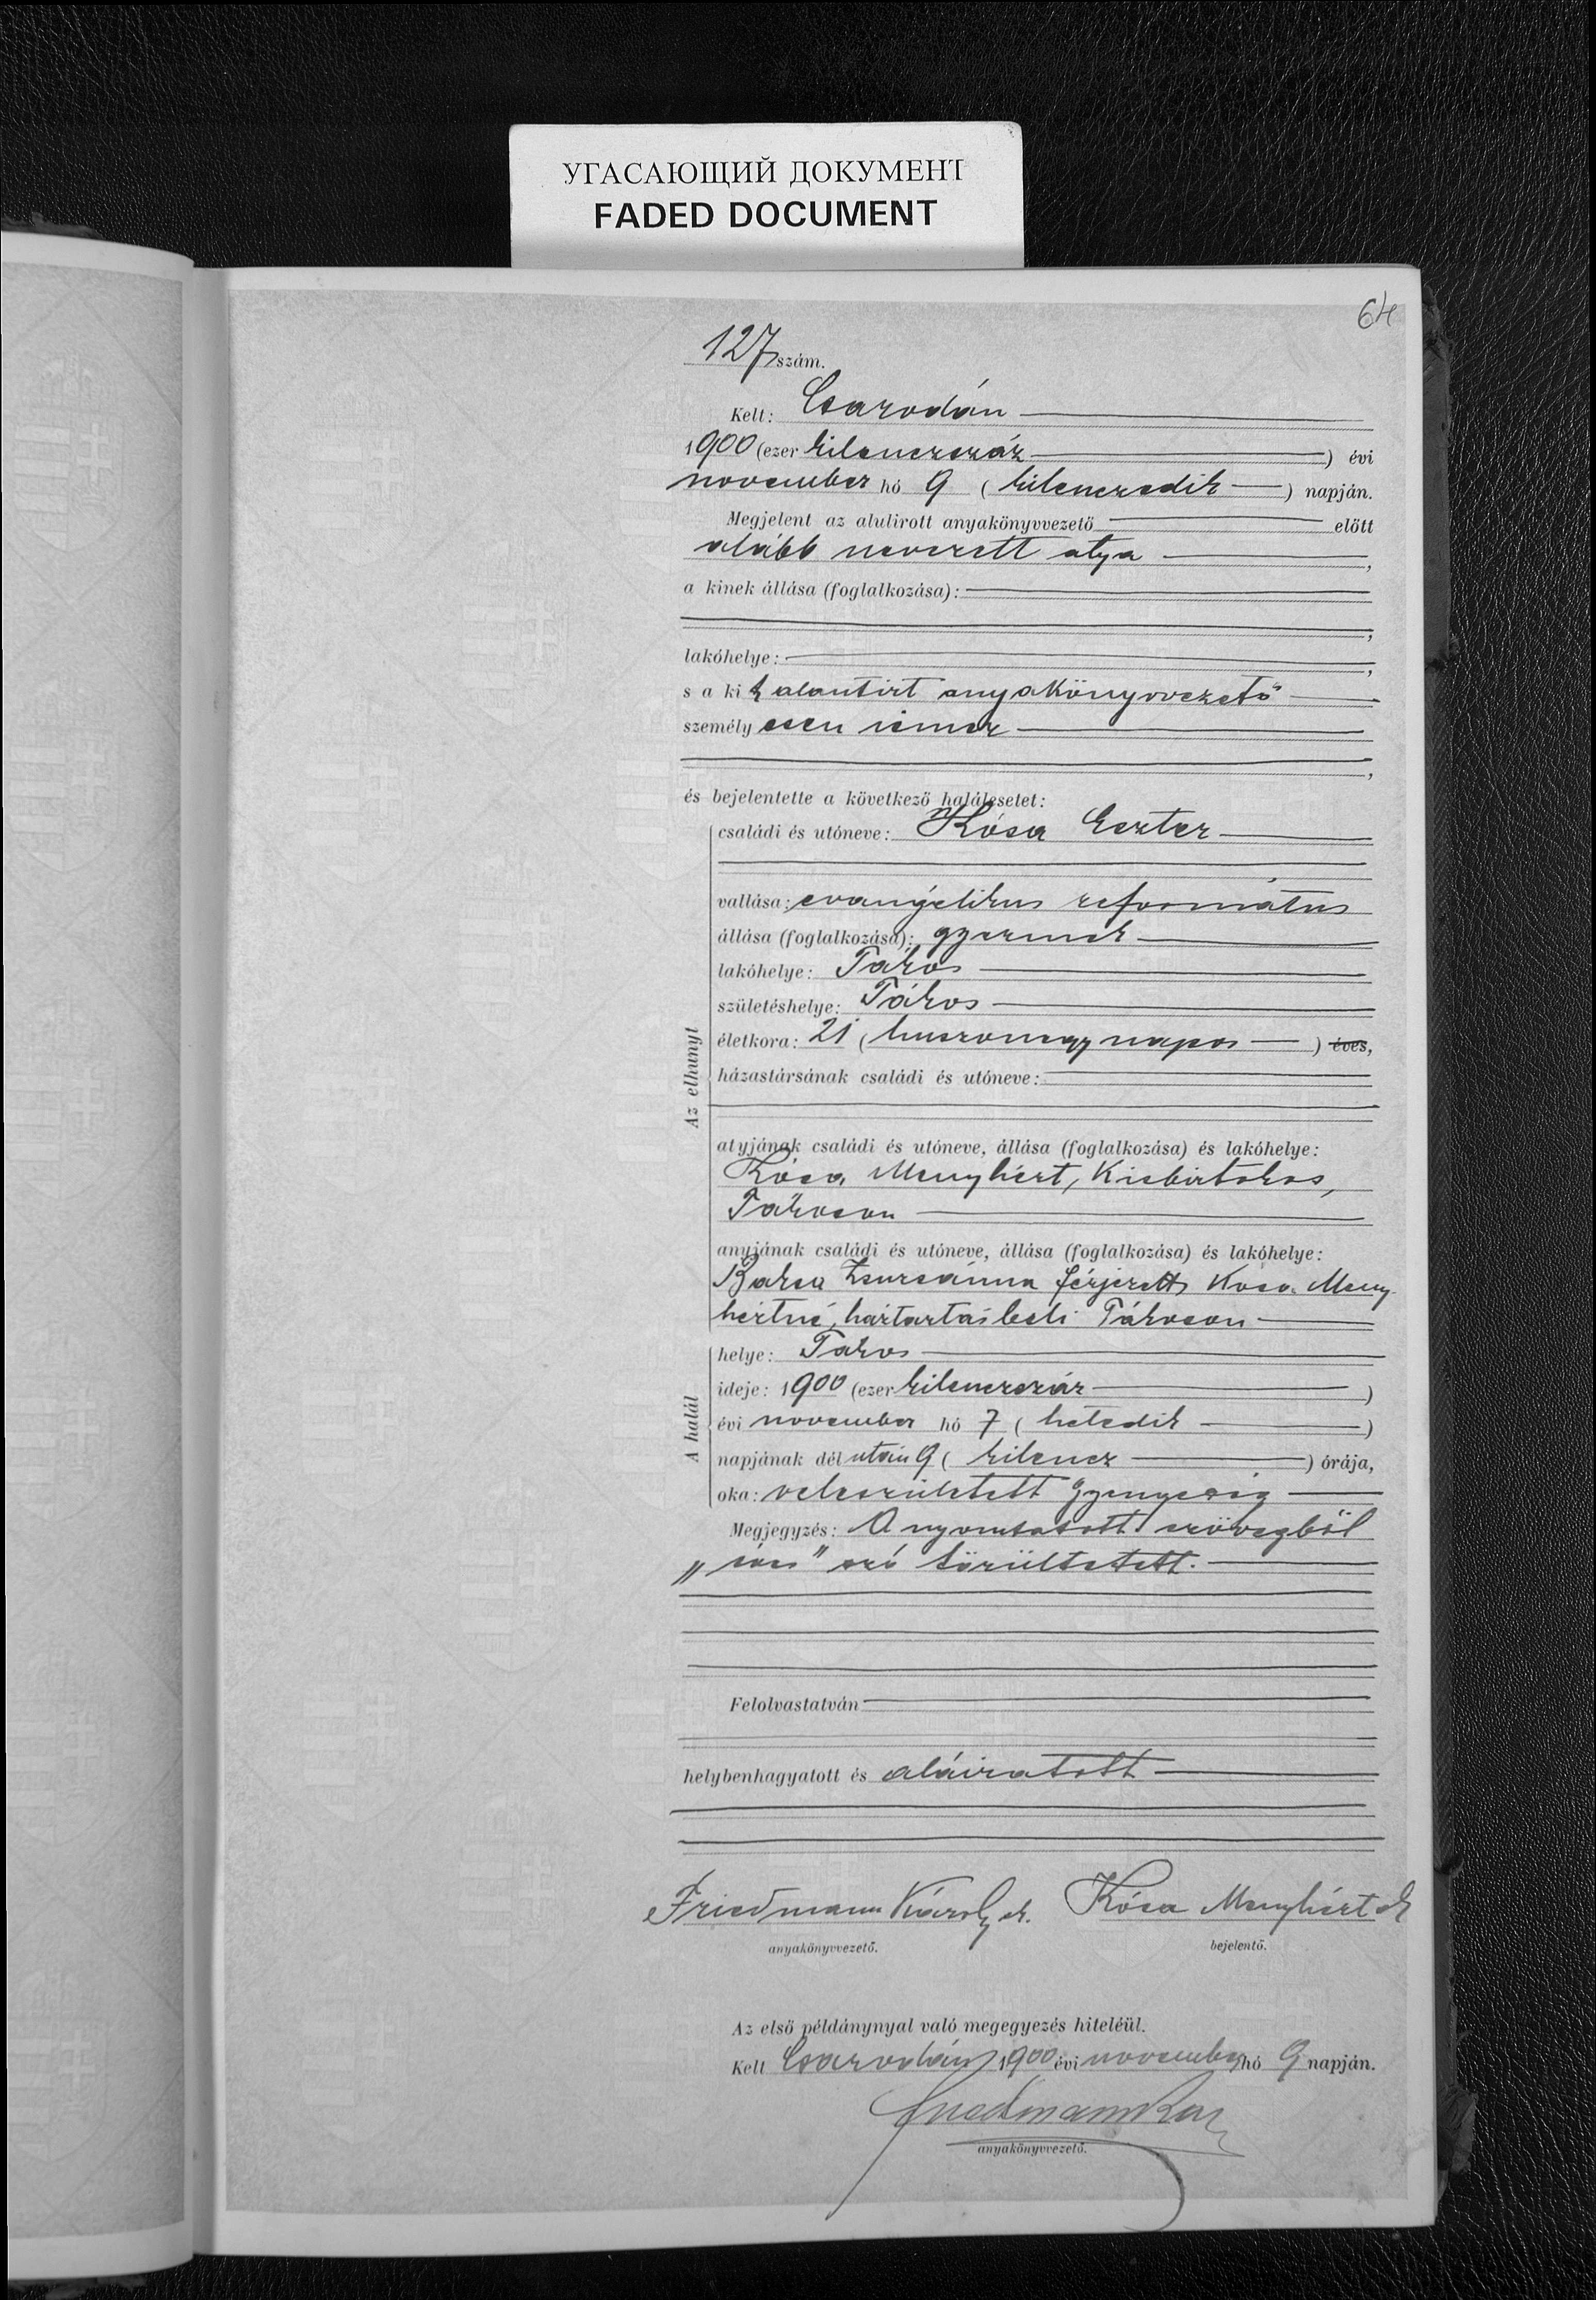 УГАСАЮЩИЙ ДОКУМЕНТ
FADED DOCUMENT
64
127 szám.
Kelt: Csarodán
1900 (ezer kilenczszáz ) évi
november hó 9 ( kilenczedik ) napján.
Megjelent az alulirott anyakönyvvezető előtt
alább nevezett atya ,
a kinek állása (foglalkozása):
,
lakóhelye: ,
s a kit alantirt anyakönyvvezető
személyesen ismer
,
és bejelentette a következő halálesetet:
családi és utóneve: Kósa Eszter
vallása: evangélikus református
állása (foglalkozása): gyermek
lakóhelye: Tákos
születéshelye: Tákos
életkora: 21 ( huszonegy napos ) éves,
házastársának családi és utóneve:
Az elhunyt
atyjának családi és utóneve, állása (foglalkozása) és lakóhelye:
Kósa Menyhért, Kisbirtokos,
Tákoson
anyjának családi és utóneve, állása (foglalkozása) és lakóhelye:
Zsuzsánna férjezett Kosa Meny-
hértné, háztartásbeli Tákoson
helye: Takos
ideje: 1900 (ezer kilenczszáz )
A halál
évi november hó 7 ( hetedik )
napjának délután 9 ( kilencz ) órája,
oka: veleszületett gyengeség
Megjegyzés: A nyomtatott szövegből
„éves" szó töröltetett.
Felolvastatván
helybenhagyatott és aláiratott
Friedmann Károly sk. Kósa Menyhért sk
anyakönyvvezető. bejelentő.
Az első példánynyal való megegyezés hiteléül.
Kelt Csarodán 1900 évi november hó 9 napján.
Friedmann
anyakönyvvezető.